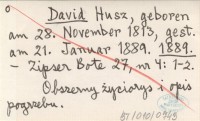 David Husz, geboren
am 28. November 1813, gest.
am 21. Januar 1889. 1889.
– Zipser Bote 27, nr 4: 1-2.
Obszerny życiorys i opis
pogrzebu.